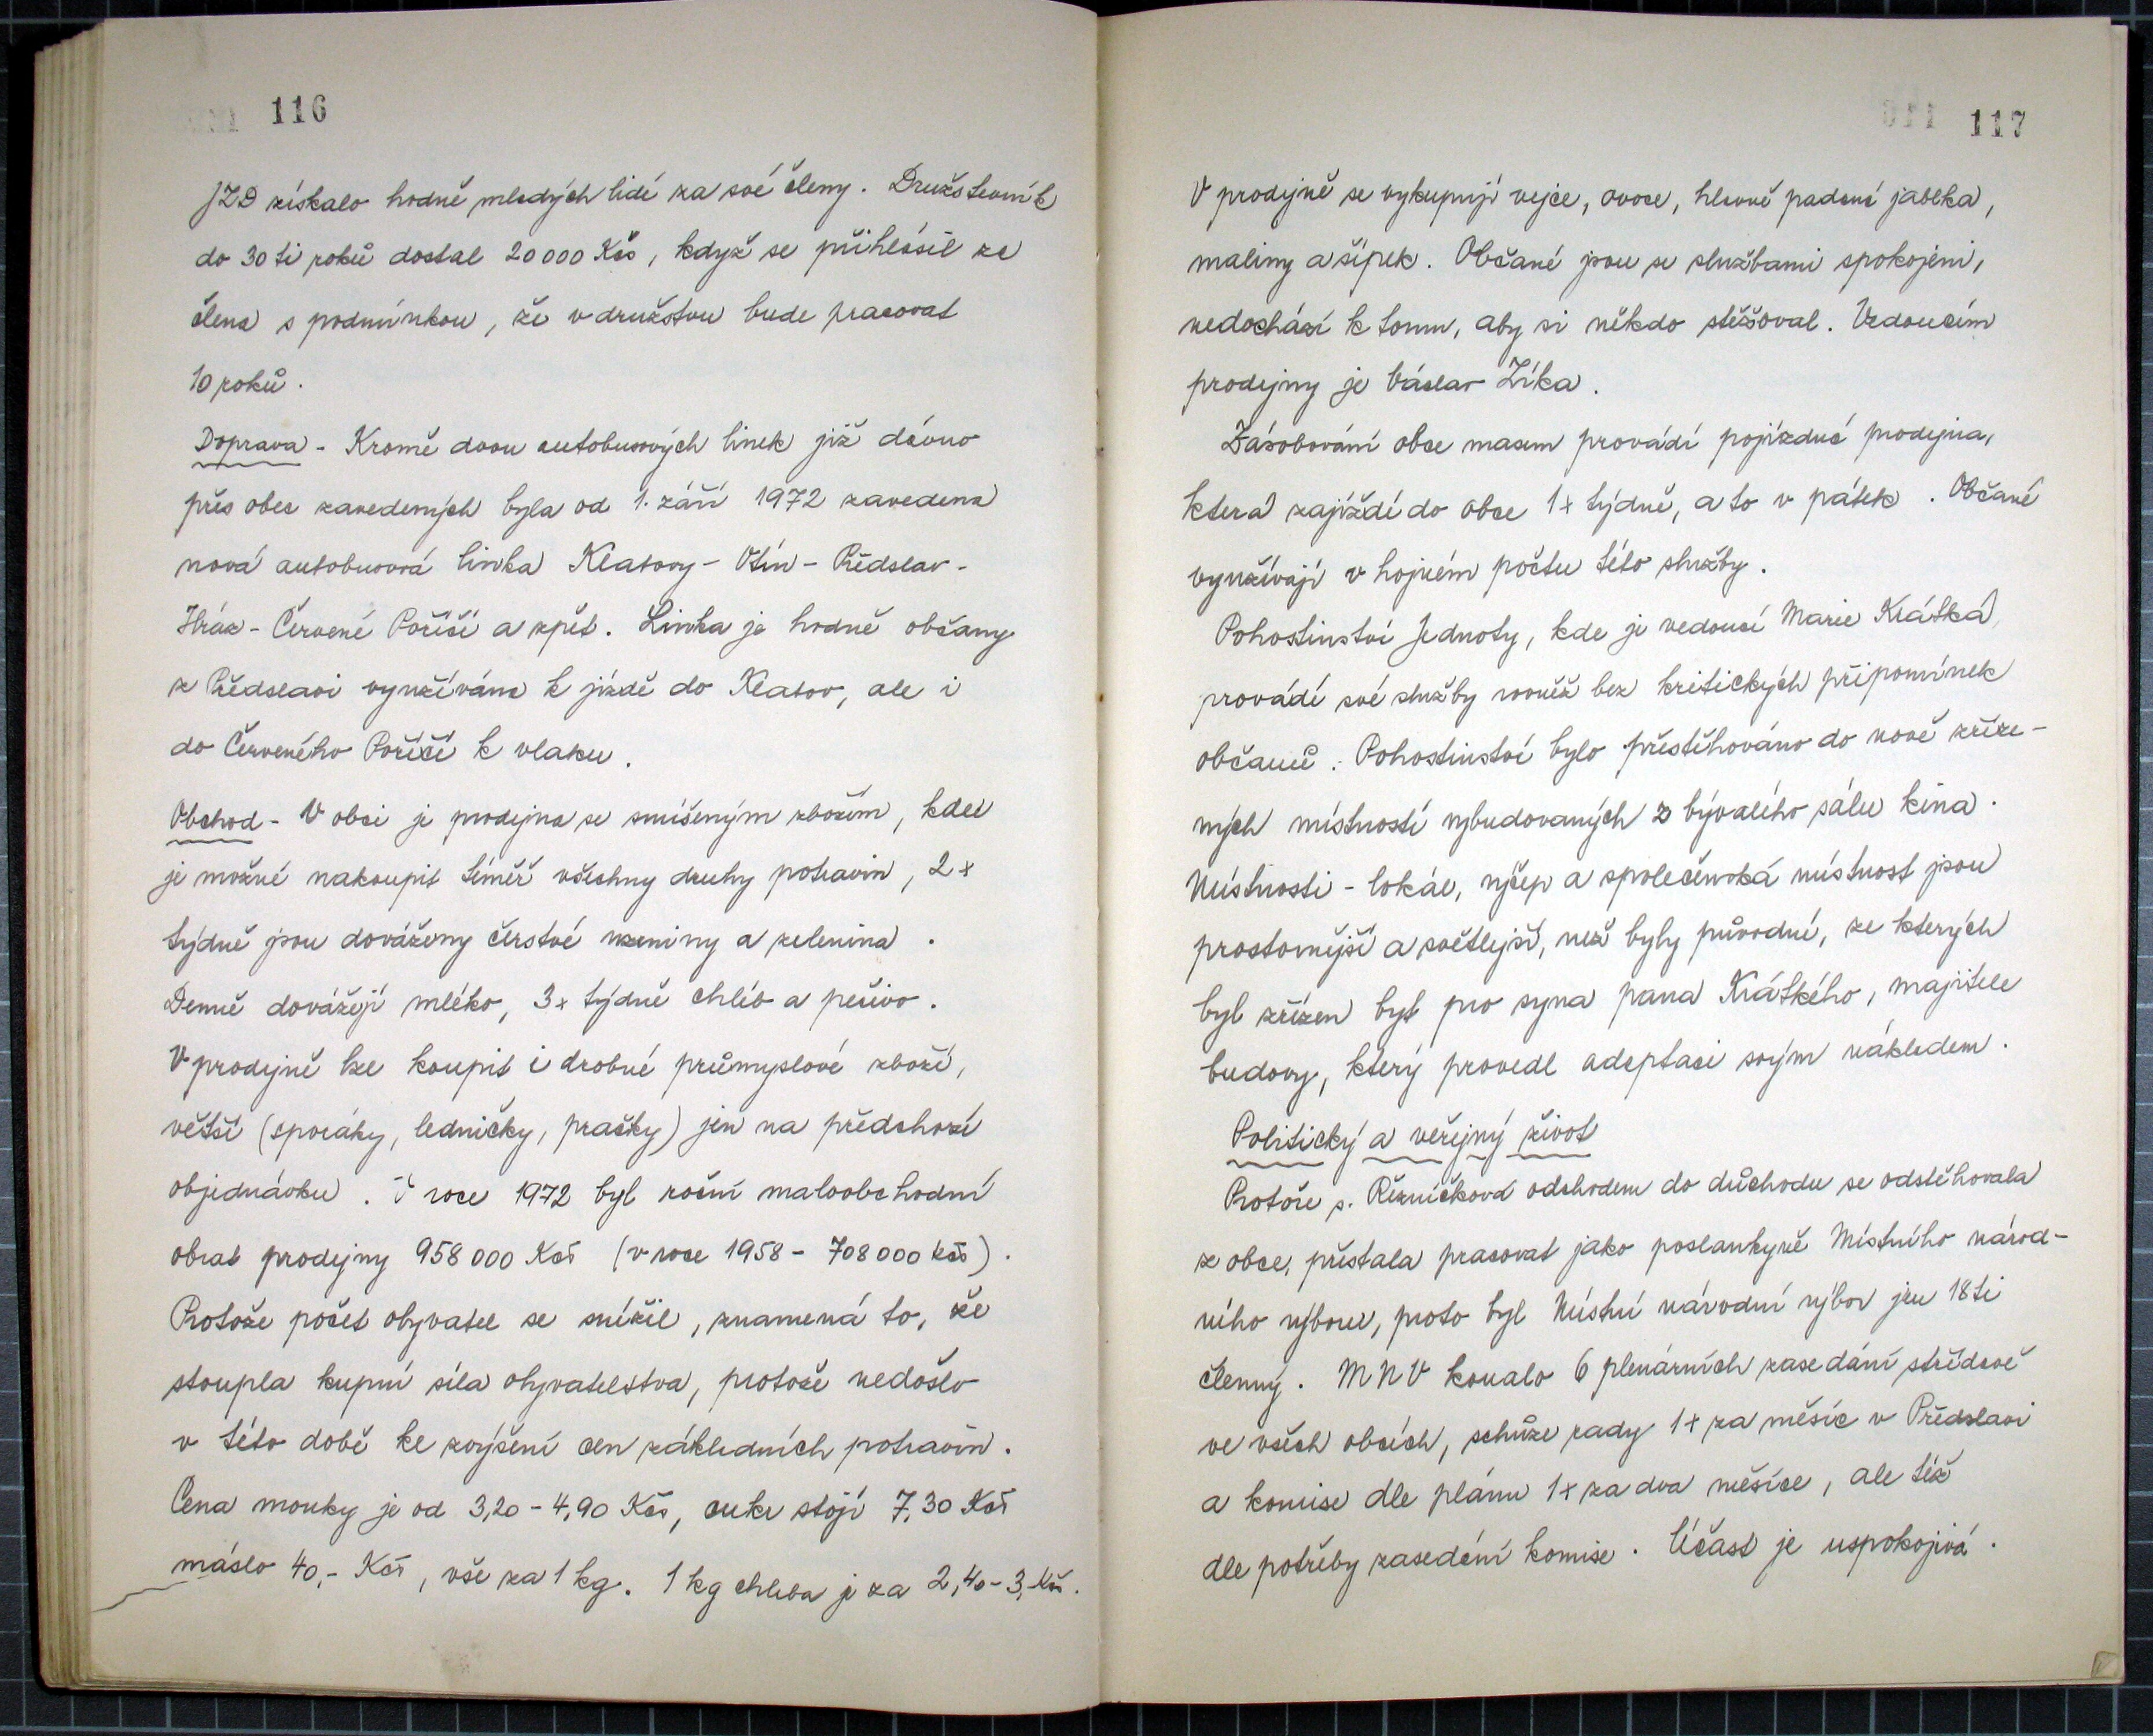 116
JZD získalo hodně mladých lidí za své členy. Družstevník
do 30 ti roků dostal 20 000 Kčs, když se přihlásil za
člena s podmínkou, že v družstvu bude pracovat
10 roků.
Doprava - Kromě dvou autobusových linek již dávno
přes obec zavedených byla od 1. září 1972 zavedena
nová autobusová linka Klatovy - Otín - Předslav -
Hráz - Červené Poříčí a zpět. Linka je hodně občany
z Předslavi využívána k jízdě do Klatov, ale i
do Červeného Poříčí k vlaku.
Obchod - V obci je prodejna se smíšeným zbožím, kde
je možné nakoupit téměř všechny druhy potravin, 2x
týdně jsou dováženy čerstvé uzeniny a zelenina.
Denně dovážejí mléko, 3x týdně chléb a pečivo.
V prodejně lze koupit i drobné průmyslové zboží,
větší (sporáky, ledničky, pračky) jen na předchozí
objednávku. V roce 1972 byl roční maloobchodní
obrat prodejny 958 000 Kčs (v roce 1958 - 708 000 Kčs).
Protože počet obyvatel se snížil, znamená to, že
stoupla kupní síla obyvatelstva, protože nedošlo
v této době ke zvýšení cen základních potravin.
Cena mouky je od 3,20 - 4,90 Kčs, cukr stojí 7,30 Kčs
máslo 40,- Kčs, vše za 1 kg. 1 kg chleba je za 2,40 - 3,- Kčs.
117
V prodejně se vykupují vejce, ovoce, hlavně padaná jablka,
maliny a šípek. Občané jsou se službami spokojeni,
nedochází k tomu, aby si někdo stěžoval. Vedoucím
prodejny je Václav Zíka.
Zásobování obce masem provádí pojízdná prodejna,
která zajíždí do obce 1x týdně, a to v pátek. Občané
využívají v hojném počtu této služby.
Pohostinství Jednoty, kde je vedoucí Marie Krátká,
provádí své služby rovněž bez kritických připomínek
občanů. Pohostinství bylo přestěhováno do nově zříze-
ných místností vybudovaných z bývalého sálu kina.
Místnosti - lokál, výčep a společenská místnost jsou
prostornější a světlejší, než byly původní, ze kterých
byl zřízen byt pro syna pana Krátkého, majitele
budovy, který provedl adaptaci svým nákladem.
Politický a veřejný život
Protože s. Řezníčková odchodem do důchodu se odstěhovala
z obce, přestala pracovat jako poslankyně Místního národ-
ního výboru, proto byl Místní národní výbor jen 18ti
členný. MNV konalo 6 plenárních zasedání střídavě
ve všech obcích, schůze rady 1x za měsíc v Předslavi
a komise dle plánu 1x za dva měsíce, ale též
dle potřeby zasedání komise. Účast je uspokojivá.